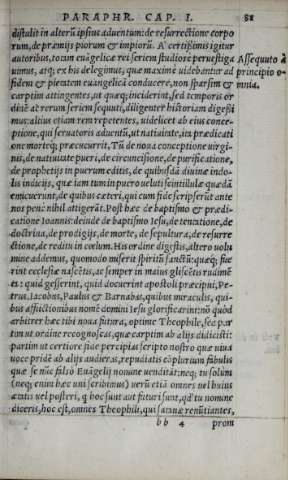 PARAPHR. CAP. I. 88
distulit in alterũ ipsius aduentum: de resurrectione corpo
rum, de præmijs piorum & impiorũ. A' certissimis igitur
autoribus, totam euãgelicæ rei seriem studiose peruestiga
uimus, atq; ex his delegimus, quæ maxime uidebantur ad
fidem & pietatem euangelicã conducere, non sparsim &
carptim attingentes, ut quæq; inciderint, sed temporis or
dine ac rerum seriem sequuti, diligenter historiam digessi
mus: altius etiam rem repetentes, uidelicet ab eius conce-
ptione, qui seruatoris aduentũ, ut natiuitate, ita prædicati
one mortéq; præcucurrit. Tũ de noua conceptione uirgi-
nis, de natiuitate pueri, de circuncisione, de purificatione,
de prophetijs in puerum editis, de quibusdã diuinæ indo-
lis indicijs, quæ iam tum in puero ueluti scintillulæ quædã
emicuerunt, de quibus cæteri, qui cum fide scripserũt ante
nos penè nihil attigerãt. Post hæc de baptismo & prædi-
catione Ioannis: deinde de baptismo Iesu, de tentatione, de
doctrina, de prodigijs, de morte, de sepultura, de resurre
ctione, de reditu in cœlum. His ordine digestis, altero uolu
mine addemus, quomodo miserit spiritũ sanctũ: quæq; fue
rint ecclesiæ nascẽtis, ac semper in maius gliscẽtis rudimẽ
ta: quid gesserint, quid docuerint apostoli præcipui, Pe-
trus, Iacobus, Paulus & Barnabas, quibus miraculis, qui-
bus afflictionibus nomẽ domini Iesu glorificarint: nõ quòd
arbitrer hæc tibi noua futura, optime Theophile, sed par
tim ut ordine recognoscas, quæ carptim ab alijs didicisti:
partim ut certiore fide percipias scripto nostro quæ uiua
uoce pridẽ ab alijs audieras, repudiatis cõplurium fabulis
quæ se nũc falsò Euãgelij nomine uenditãt: neq; tu solum
(neq; enim hæc uni scribimus) uerũ etiã omnes uel huius
ætatis uel posteri, q hoc sunt aut futuri sunt, qd' tu nomine
diceris, hoc est, omnes Theophili, qui satanæ renũtiantes,
bb 4 prom
Assequuto à
principio o-
mnia.